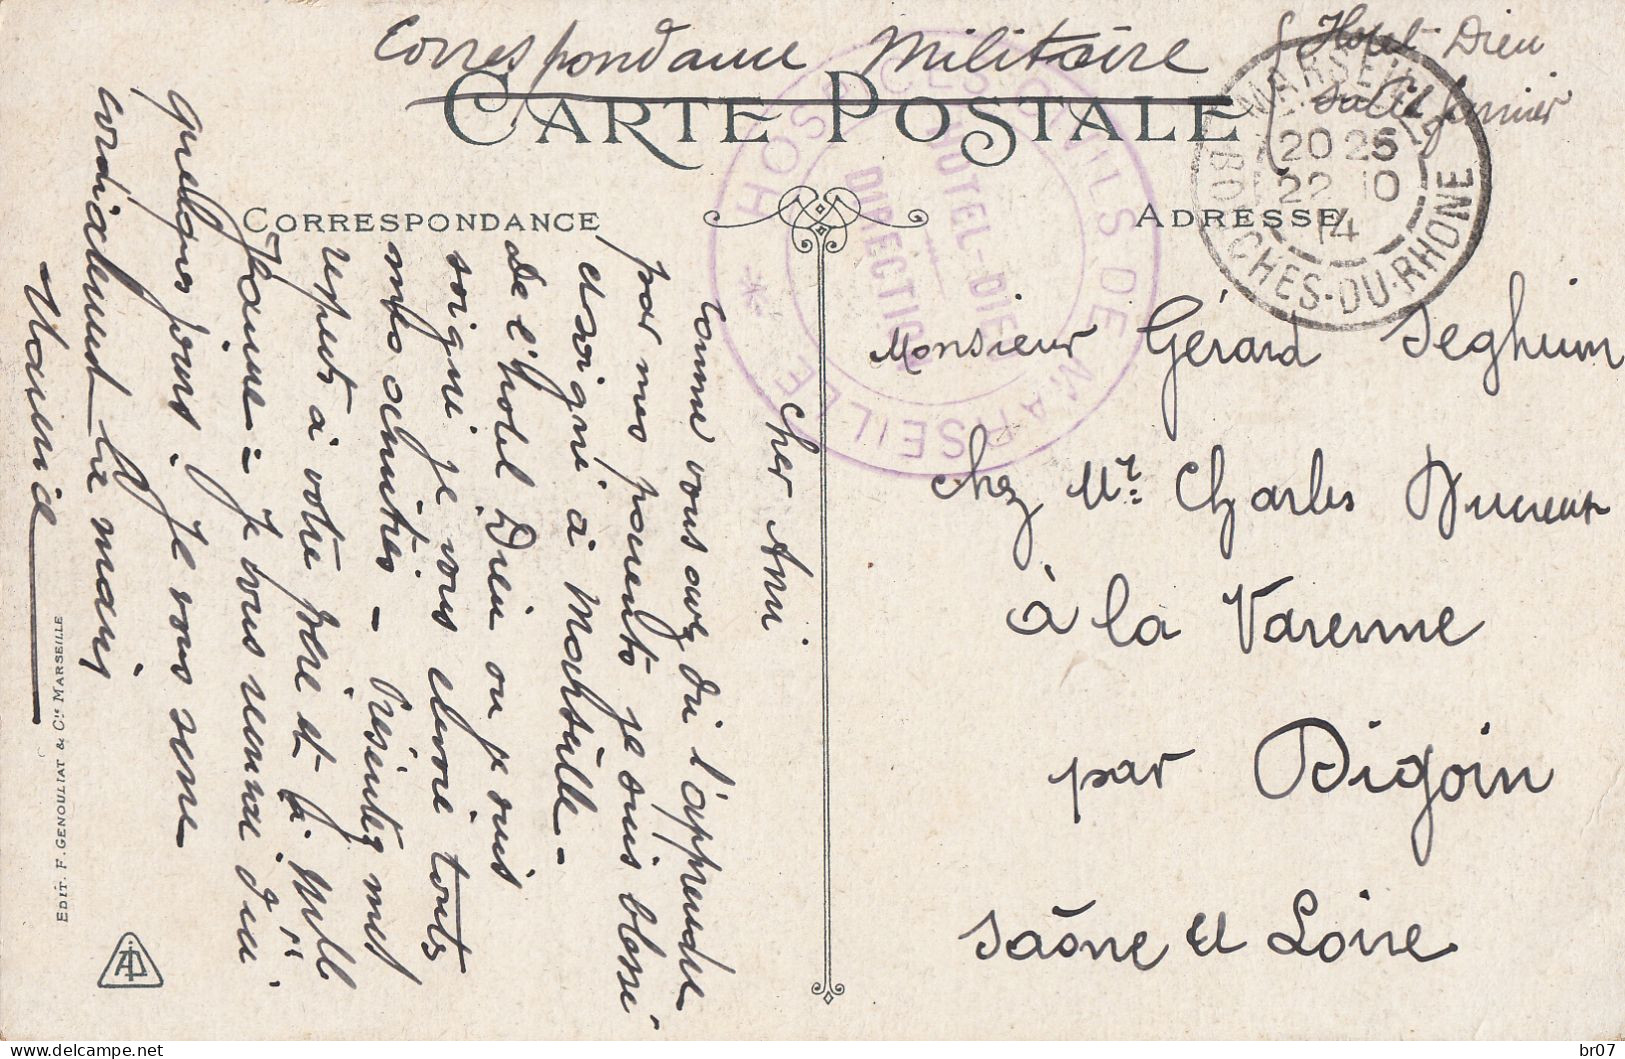 Correspondance Militaire
Hotel-Dieu
Salle
CARTE POSTALE
CORRESPONDANCE
ADRESSE
MARSEILLE
20 25
22 10
14
BOUCHES-DU-RHONE
HOSPICES CIVILS DE MARSEILLE *
HOTEL-DIEU
DIRECTION
Monsieur Gérard Seghum
chez Mr. Charles
à la Varenne
par Digoin
Saône et Loire
Cher Ami
Comme vous avez du l'apprendre
par mes parents je suis blessé
et soigné à Marseille.
De l'hotel Dieu ou je suis
soigné je vous envoie toutes
mes amitiés - Présentez mes
respects à votre père et à Mlle
Jeanne - Je vous
quelques jours. Je vous serre
cordialement la main
Maurice
EDIT. F. GENOULIAT & Cie MARSEILLE